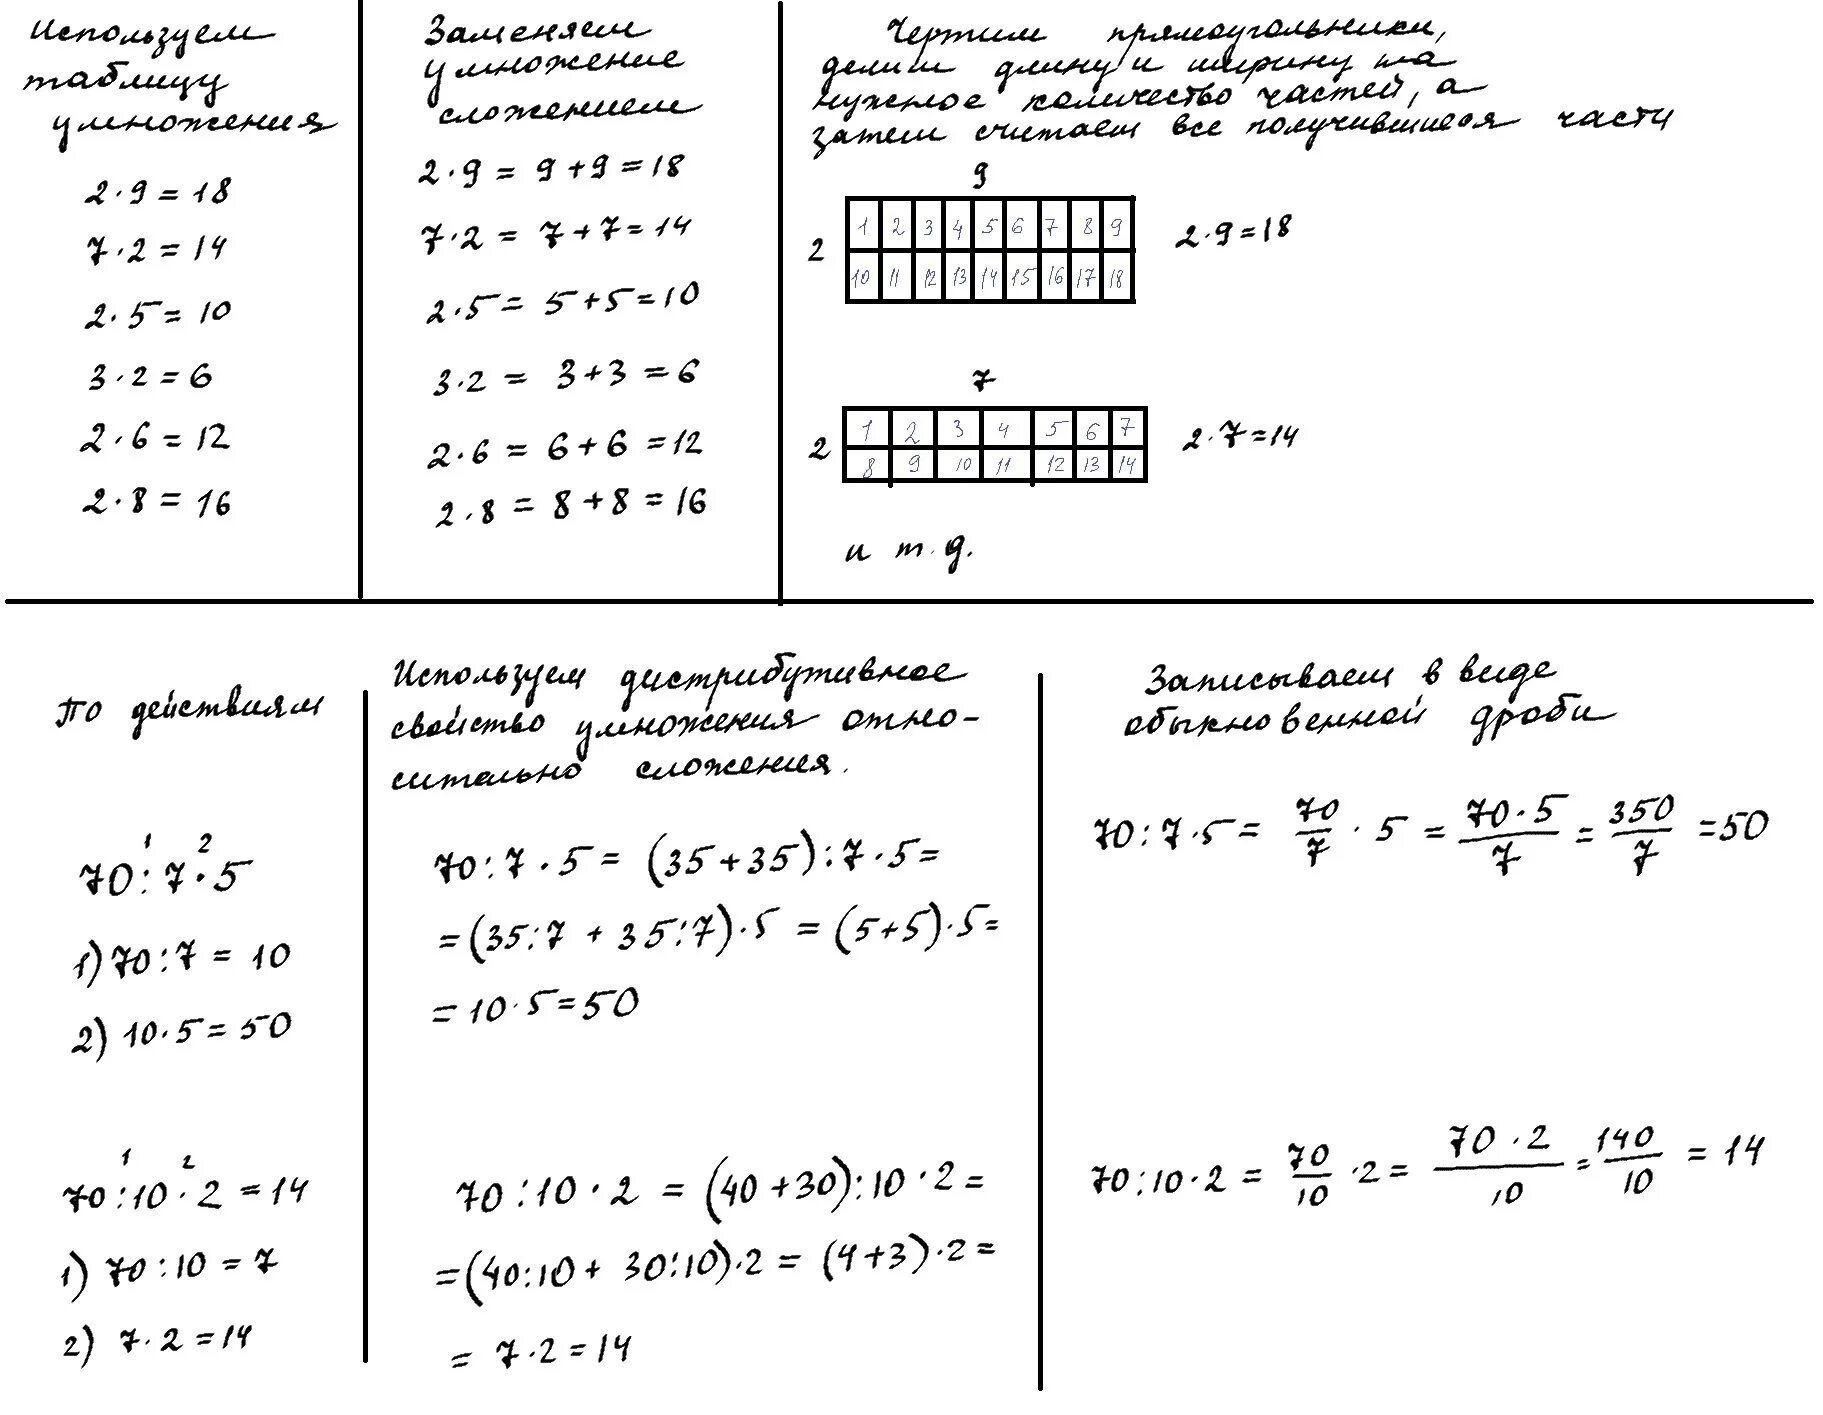 Используем
таблицу
умножения
2·9=18
7·2=14
2·5=10
3·2=6
2·6=12
2·8=16
Заменяем
умножение
сложением
2·9=9+9=18
7·2=7+7=14
2·5=5+5=10
3·2=3+3=6
2·6=6+6=12
2·8=8+8=16
Чертим прямоугольники,
делим длину и ширину на
нужное количество частей, а
затем считаем все получившиеся части
9
2
1 2 3 4 5 6 7 8 9
10 11 12 13 14 15 16 17 18
2·9=18
7
2
1 2 3 4 5 6 7
8 9 10 11 12 13 14
2·7=14
и т.д.
По действиям
1 2
70:7·5
1) 70:7=10
2) 10·5=50
1 2
70:10·2=14
1) 70:10=7
2) 7·2=14
Используем дистрибутивное
свойство умножения отно-
сительно сложения.
70:7·5=(35+35):7·5=
=(35:7+35:7)·5=(5+5)·5=
=10·5=50
70:10·2=(40+30):10·2=
=(40:10+30:10)·2=(4+3)·2=
=7·2=14
Записываем в виде
обыкновенной дроби
70:7·5=70/7·5=70·5/7=350/7=50
70:10·2=70/10·2=70·2/10=140/10=14